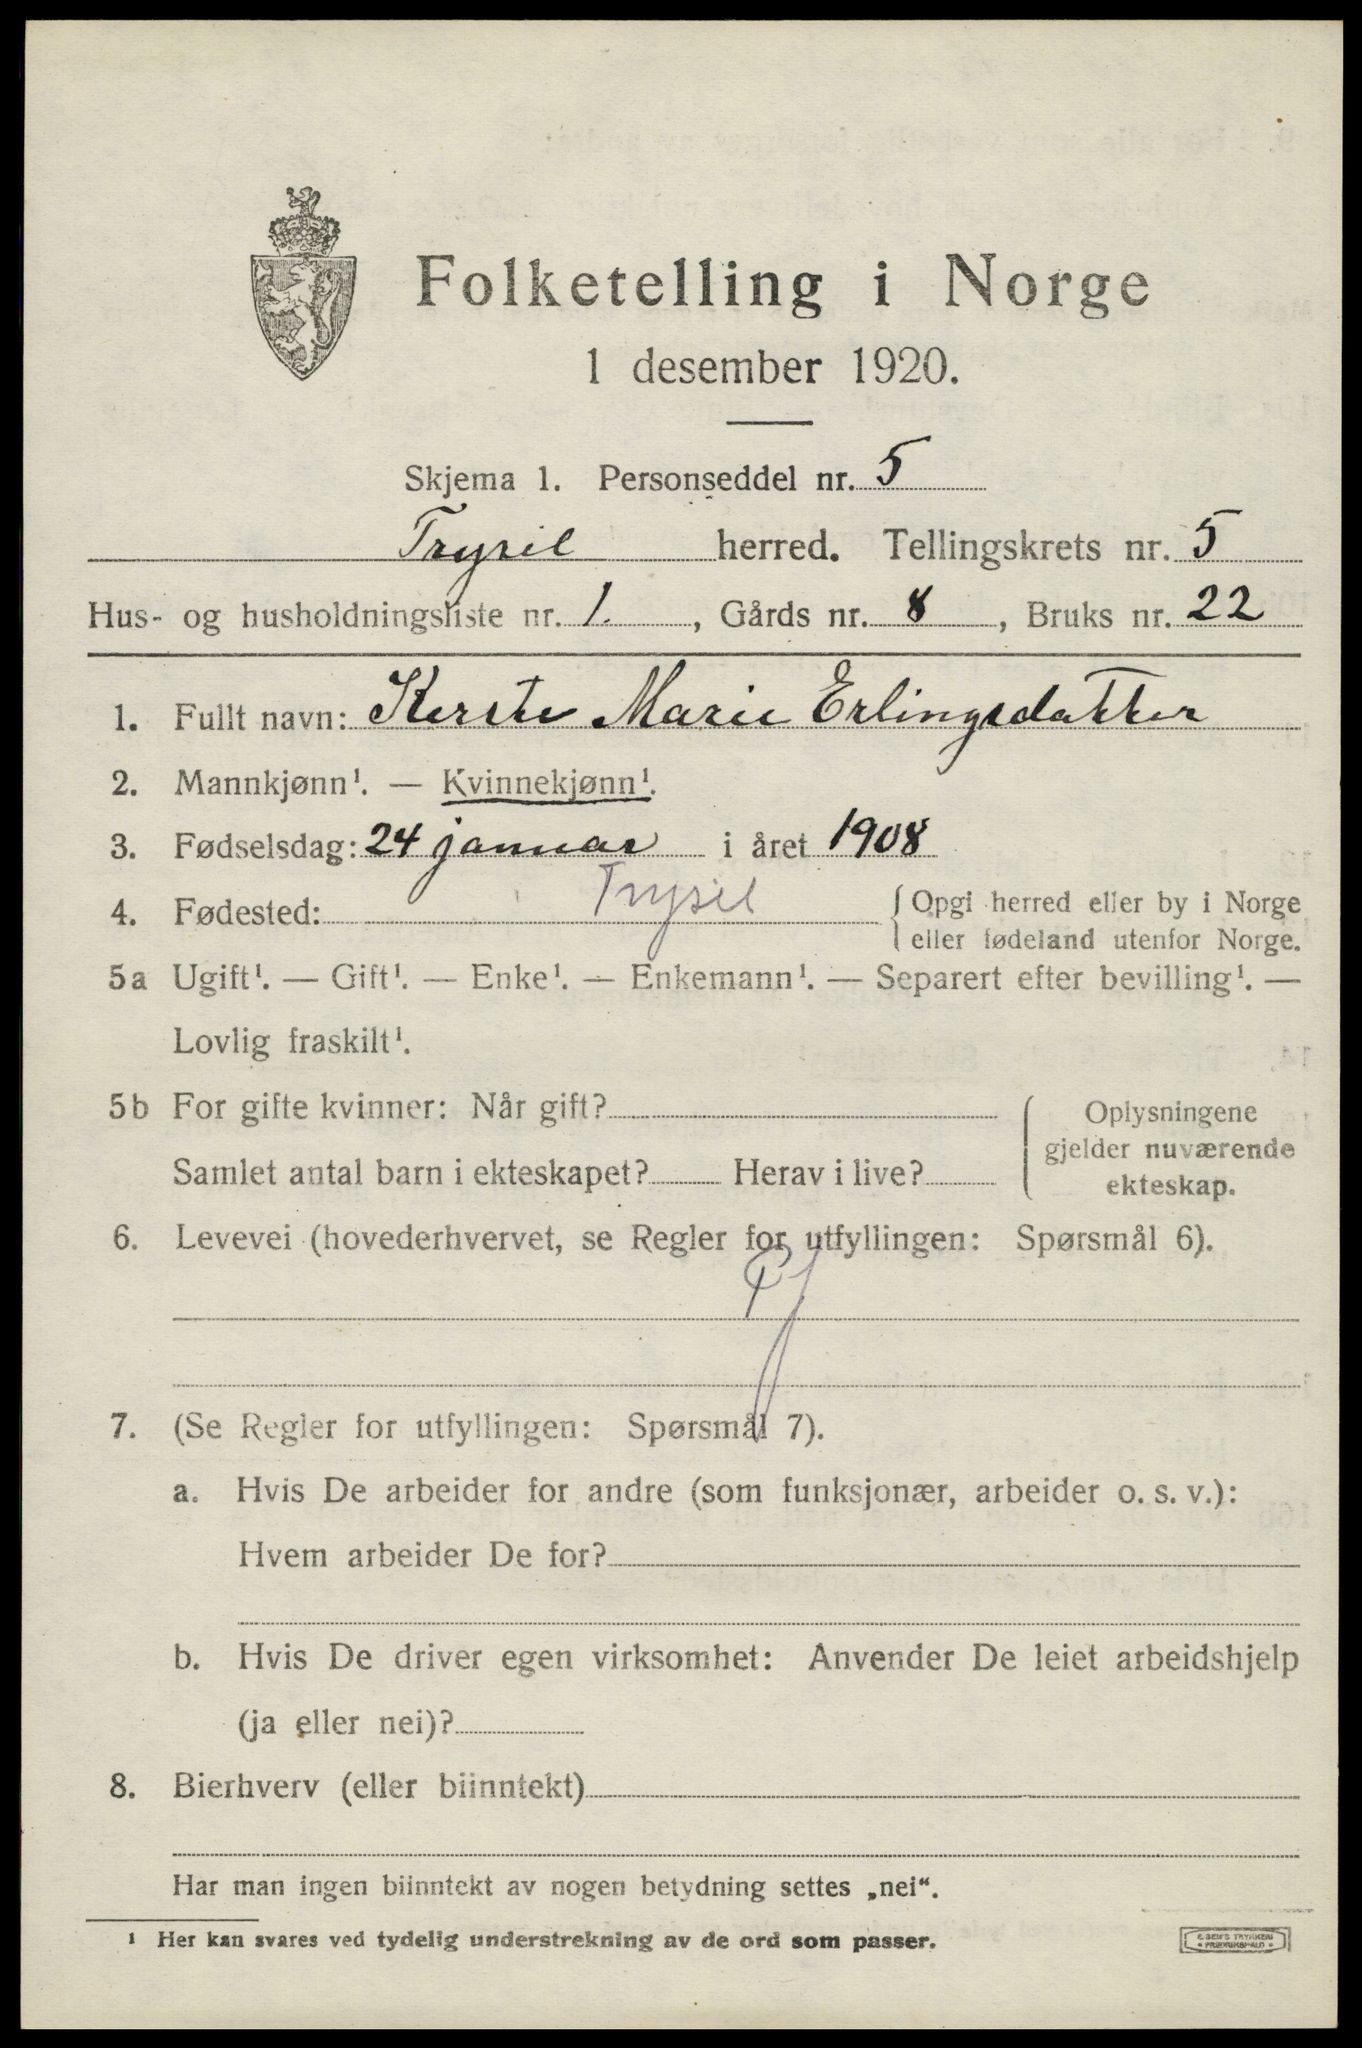 Folketelling i Norge
1 desember 1920.
Skjema 1. Personseddel nr. 5
Trysil herred. Tellingskrets nr. 5
Hus- og husholdningsliste nr. 1. , Gårds nr. 8 , Bruks nr. 22
1. Fullt navn: Kerste Marie Erlingsdatter
2. Mannkjønn¹. — Kvinnekjønn¹.
3. Fødselsdag: 24 januar i året 1908
4. Fødested: Trysil { Opgi herred eller by i Norge
eller fødeland utenfor Norge.
5a Ugift¹. — Gift¹. — Enke¹. — Enkemann¹. — Separert efter bevilling¹. —
Lovlig fraskilt¹.
5b For gifte kvinner: Når gift? { Oplysningene
gjelder nuværende
Samlet antal barn i ekteskapet? Herav i live? ekteskap.
6. Levevei (hovederhvervet, se Regler for utfyllingen: Spørsmål 6).
7. (Se Regler for utfyllingen: Spørsmål 7).
a. Hvis De arbeider for andre (som funksjonær, arbeider o. s. v.):
Hvem arbeider De for?
b. Hvis De driver egen virksomhet: Anvender De leiet arbeidshjelp
(ja eller nei)?
8. Bierhverv (eller biinntekt)
Har man ingen biinntekt av nogen betydning settes „nei“.
¹ Her kan svares ved tydelig understrekning av de ord som passer.